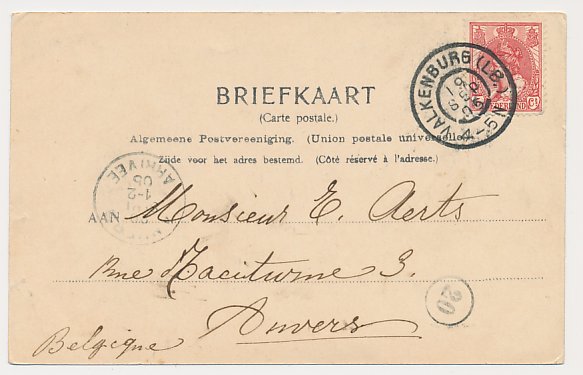 VALKENBURG (LB.)
4-5N
NEDERLAND
BRIEFKAART
(Carte postale.)
Algemeene Postvereeniging. (Union postale universelle)
Zijde voor het adres bestemd. (Côté réservé à l'adresse.)
ARRIVEE
05
1-2
AAN Monsieur E. Aerts
Rue Taciturne 3.
20
Anvers
Belgique